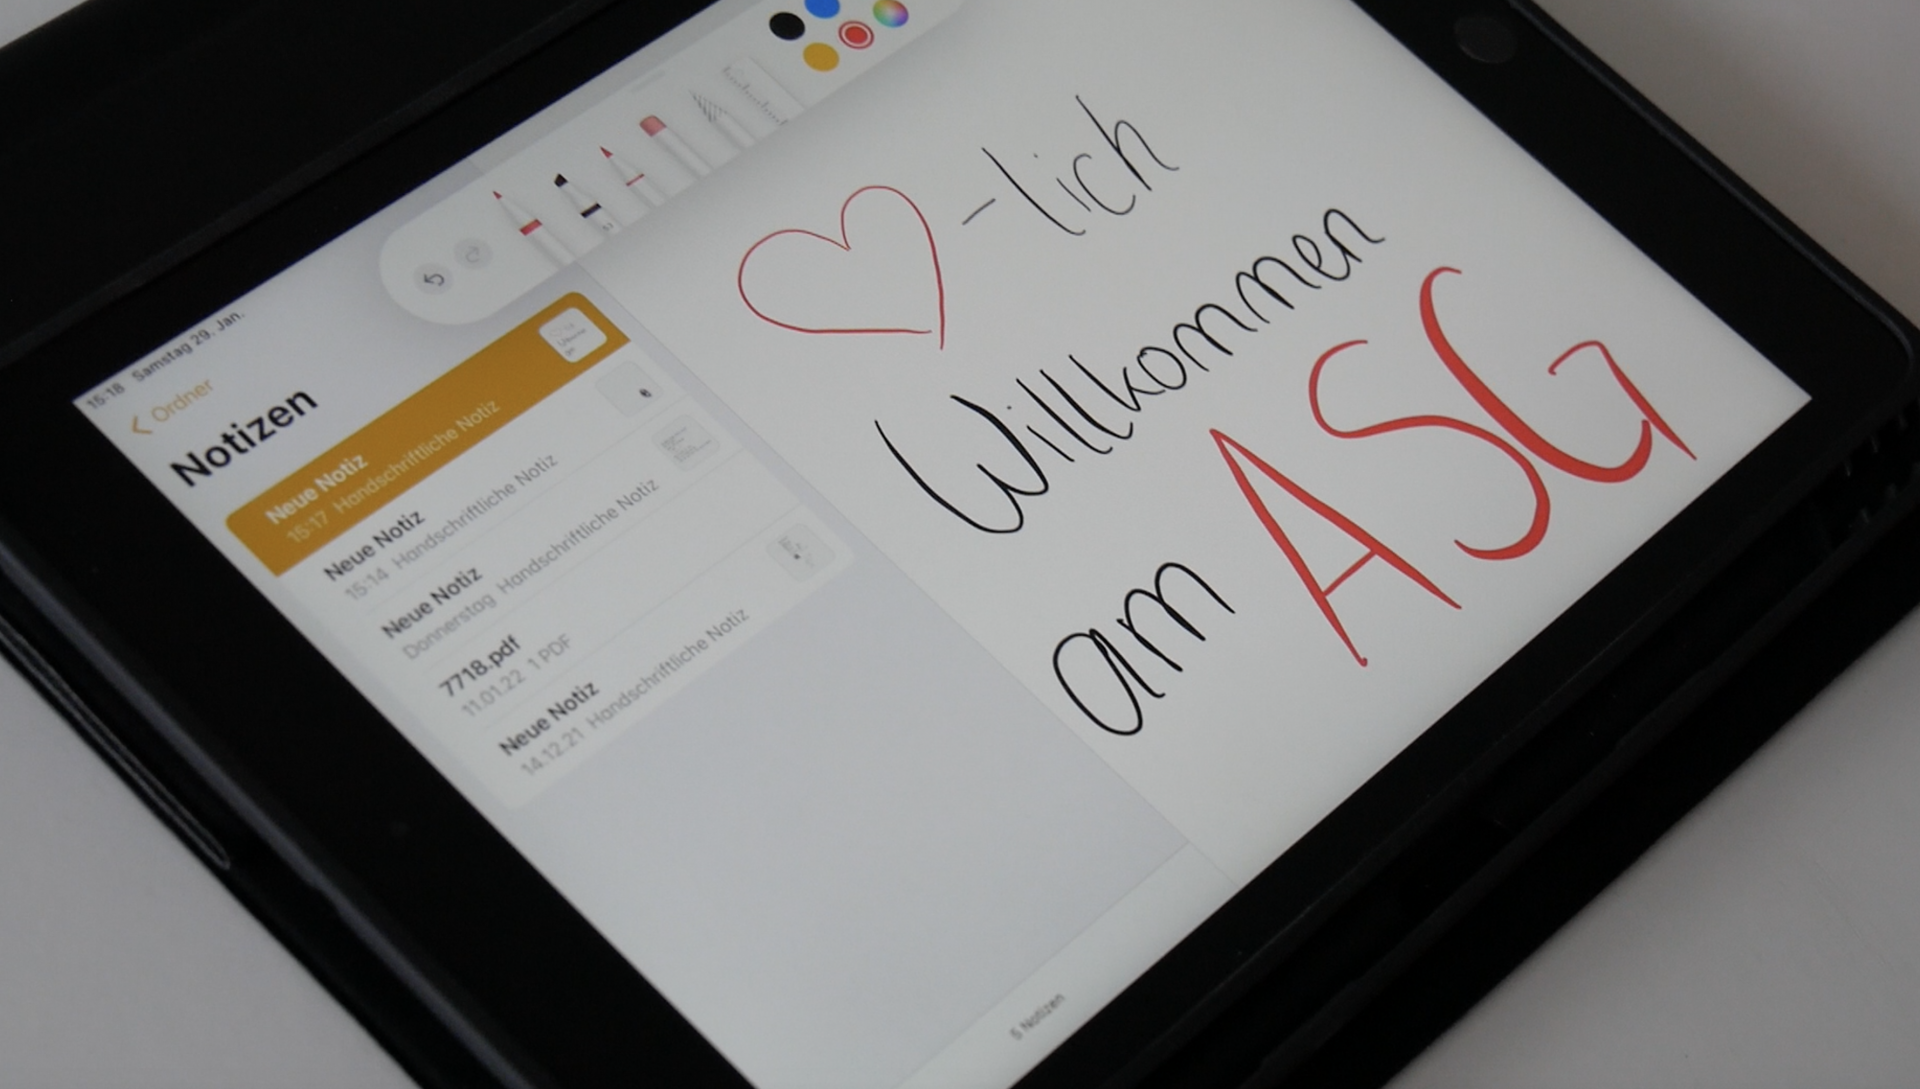 15:18 Samstag 29. Jan.
Ordner
Notizen
Neue Notiz
15:17 Handschriftliche Notiz
Neue Notiz
15:14 Handschriftliche Notiz
Neue Notiz
Donnerstag Handschriftliche Notiz
7718.pdf
11.01.22 1 PDF
Neue Notiz
14.12.21 Handschriftliche Notiz
5 Notizen
-lich
Willkommen
am ASG